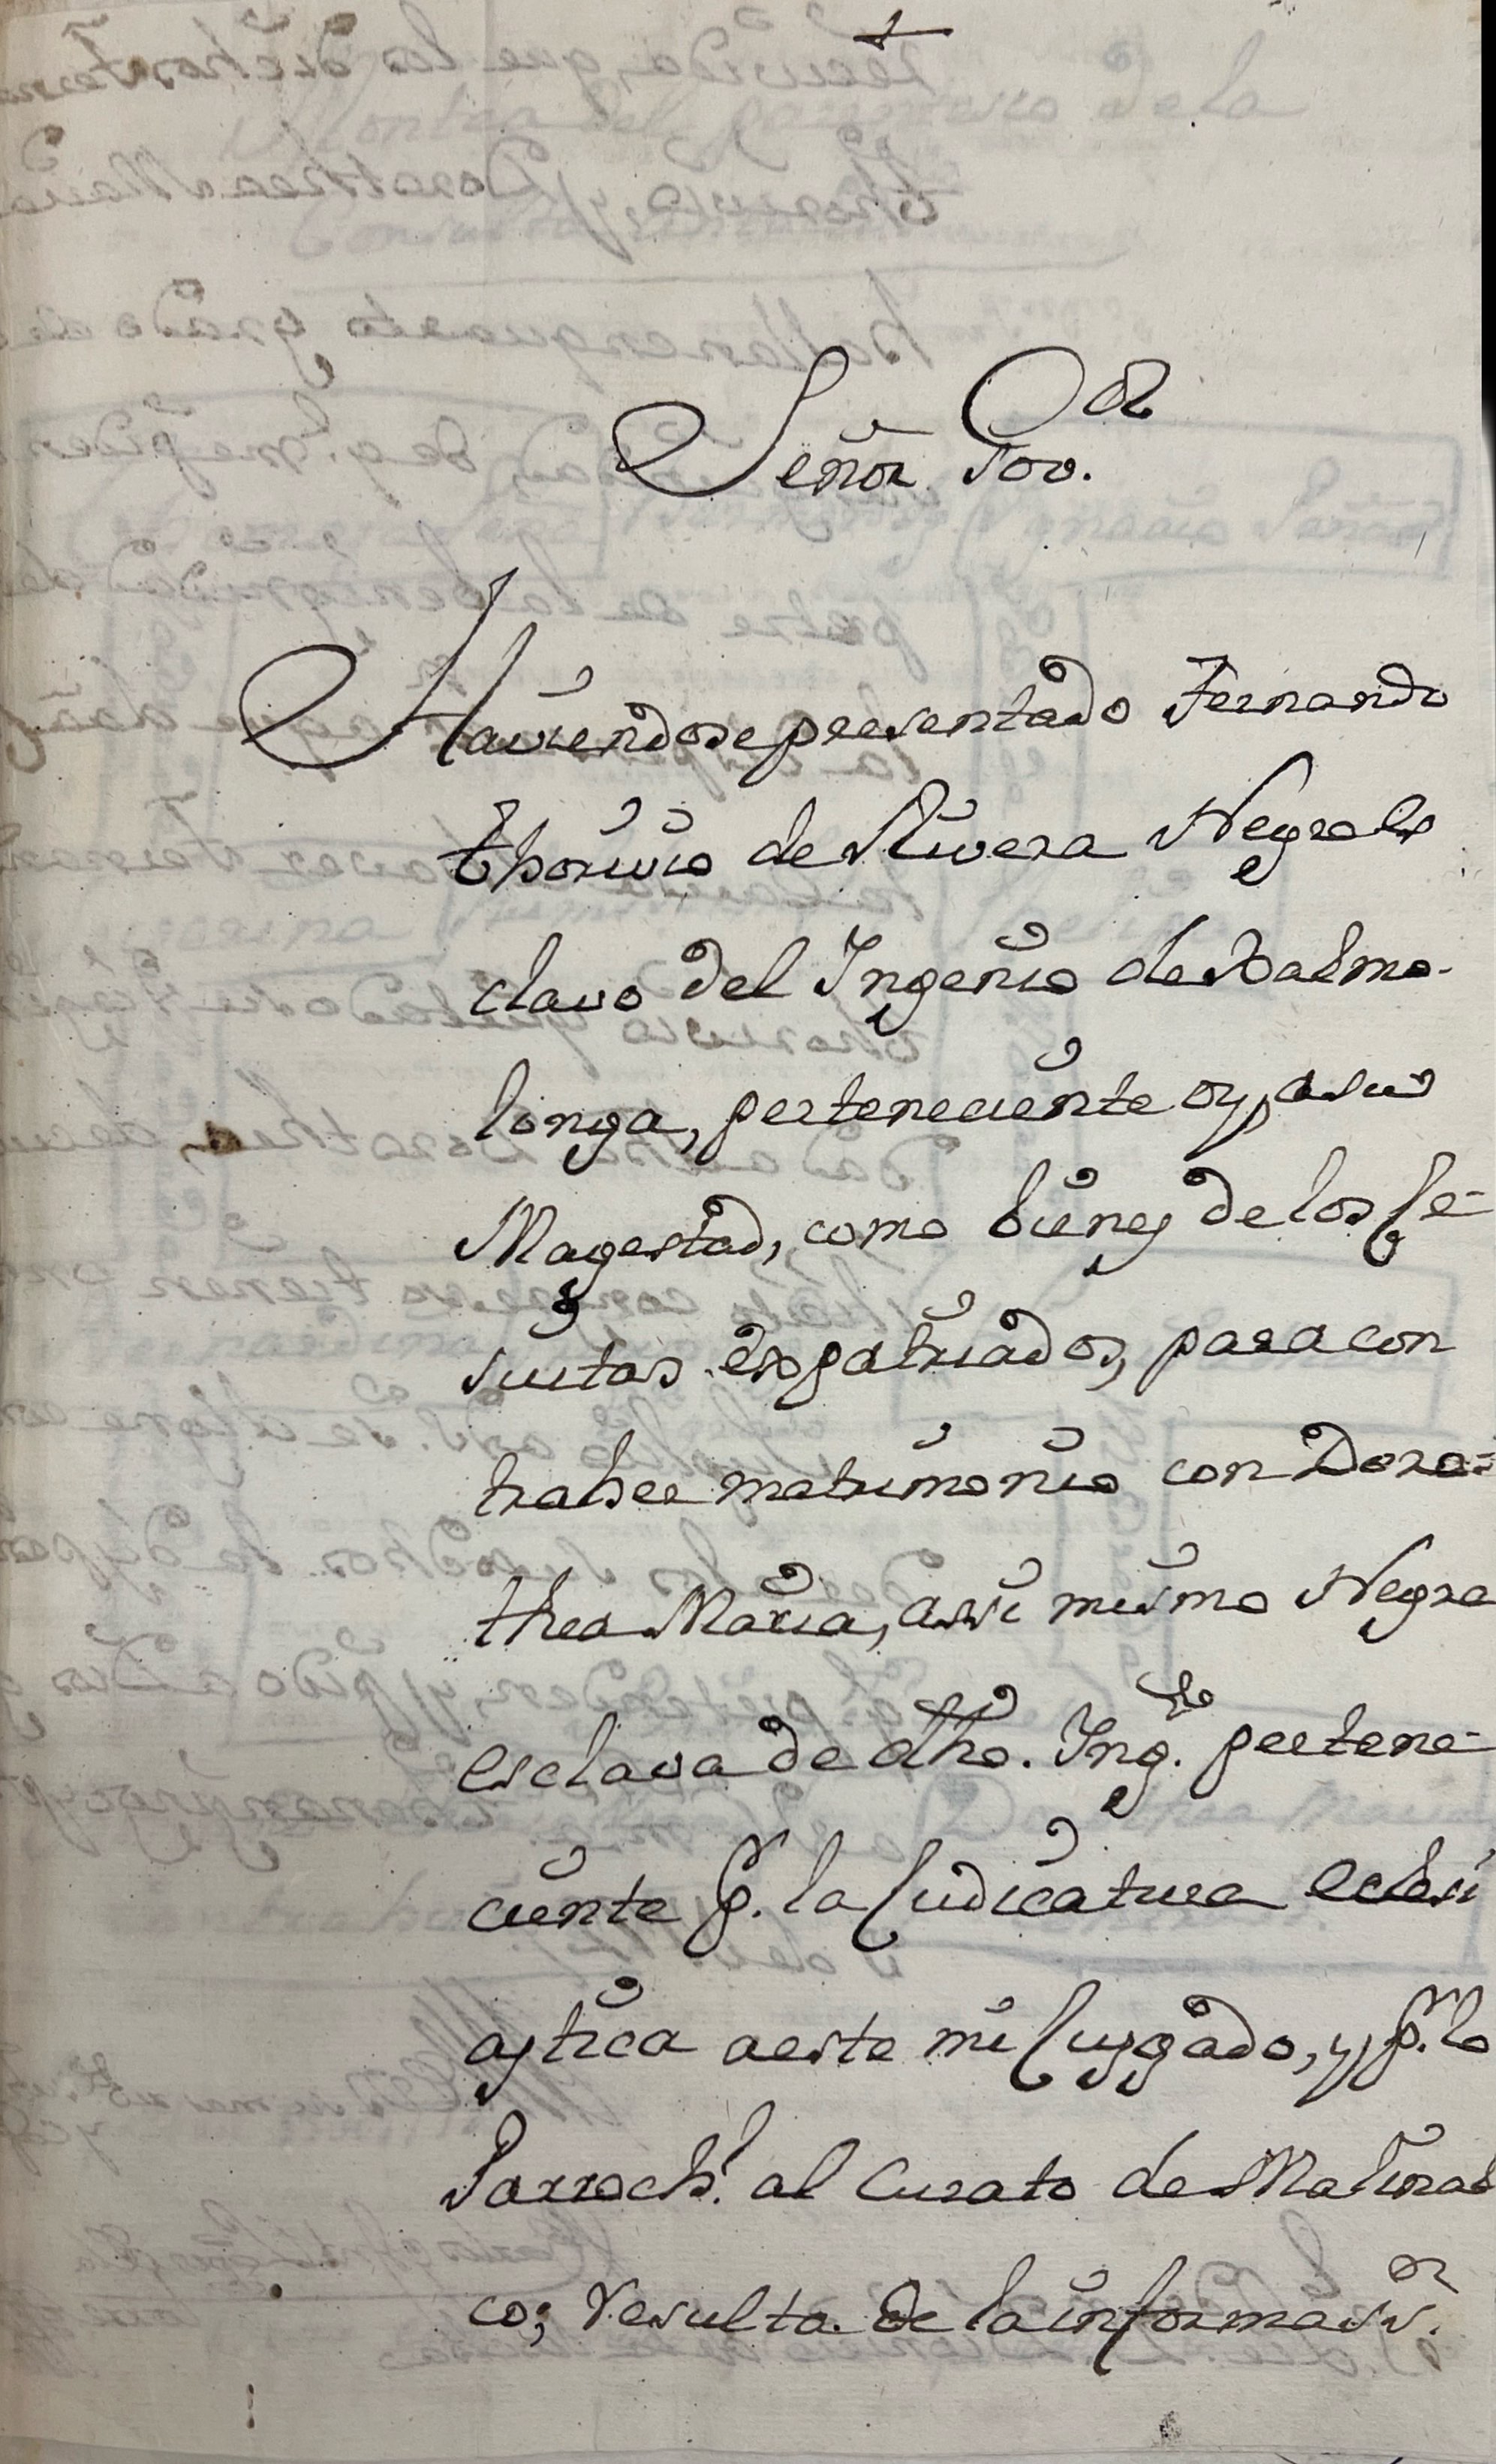 +
Señor Gov.or
Haviendose presentado Fernando
thorivio de Rivera Negro es
clavo del Ingenio de Xalmo-
longa, perteneciente oy, a su
Magestad, como bienes de los Je-
suitas expatriados, para con
traher matrimonio con Doro-
thea Maria, assi mismo Negra
esclava de dho. Ing.nio pertene-
ciente p.r la Judicatura eclesi
astica a este mi Juzgado, y p.r lo
Parroch.l al Curato de Malinal
co; resulta de la informass.on